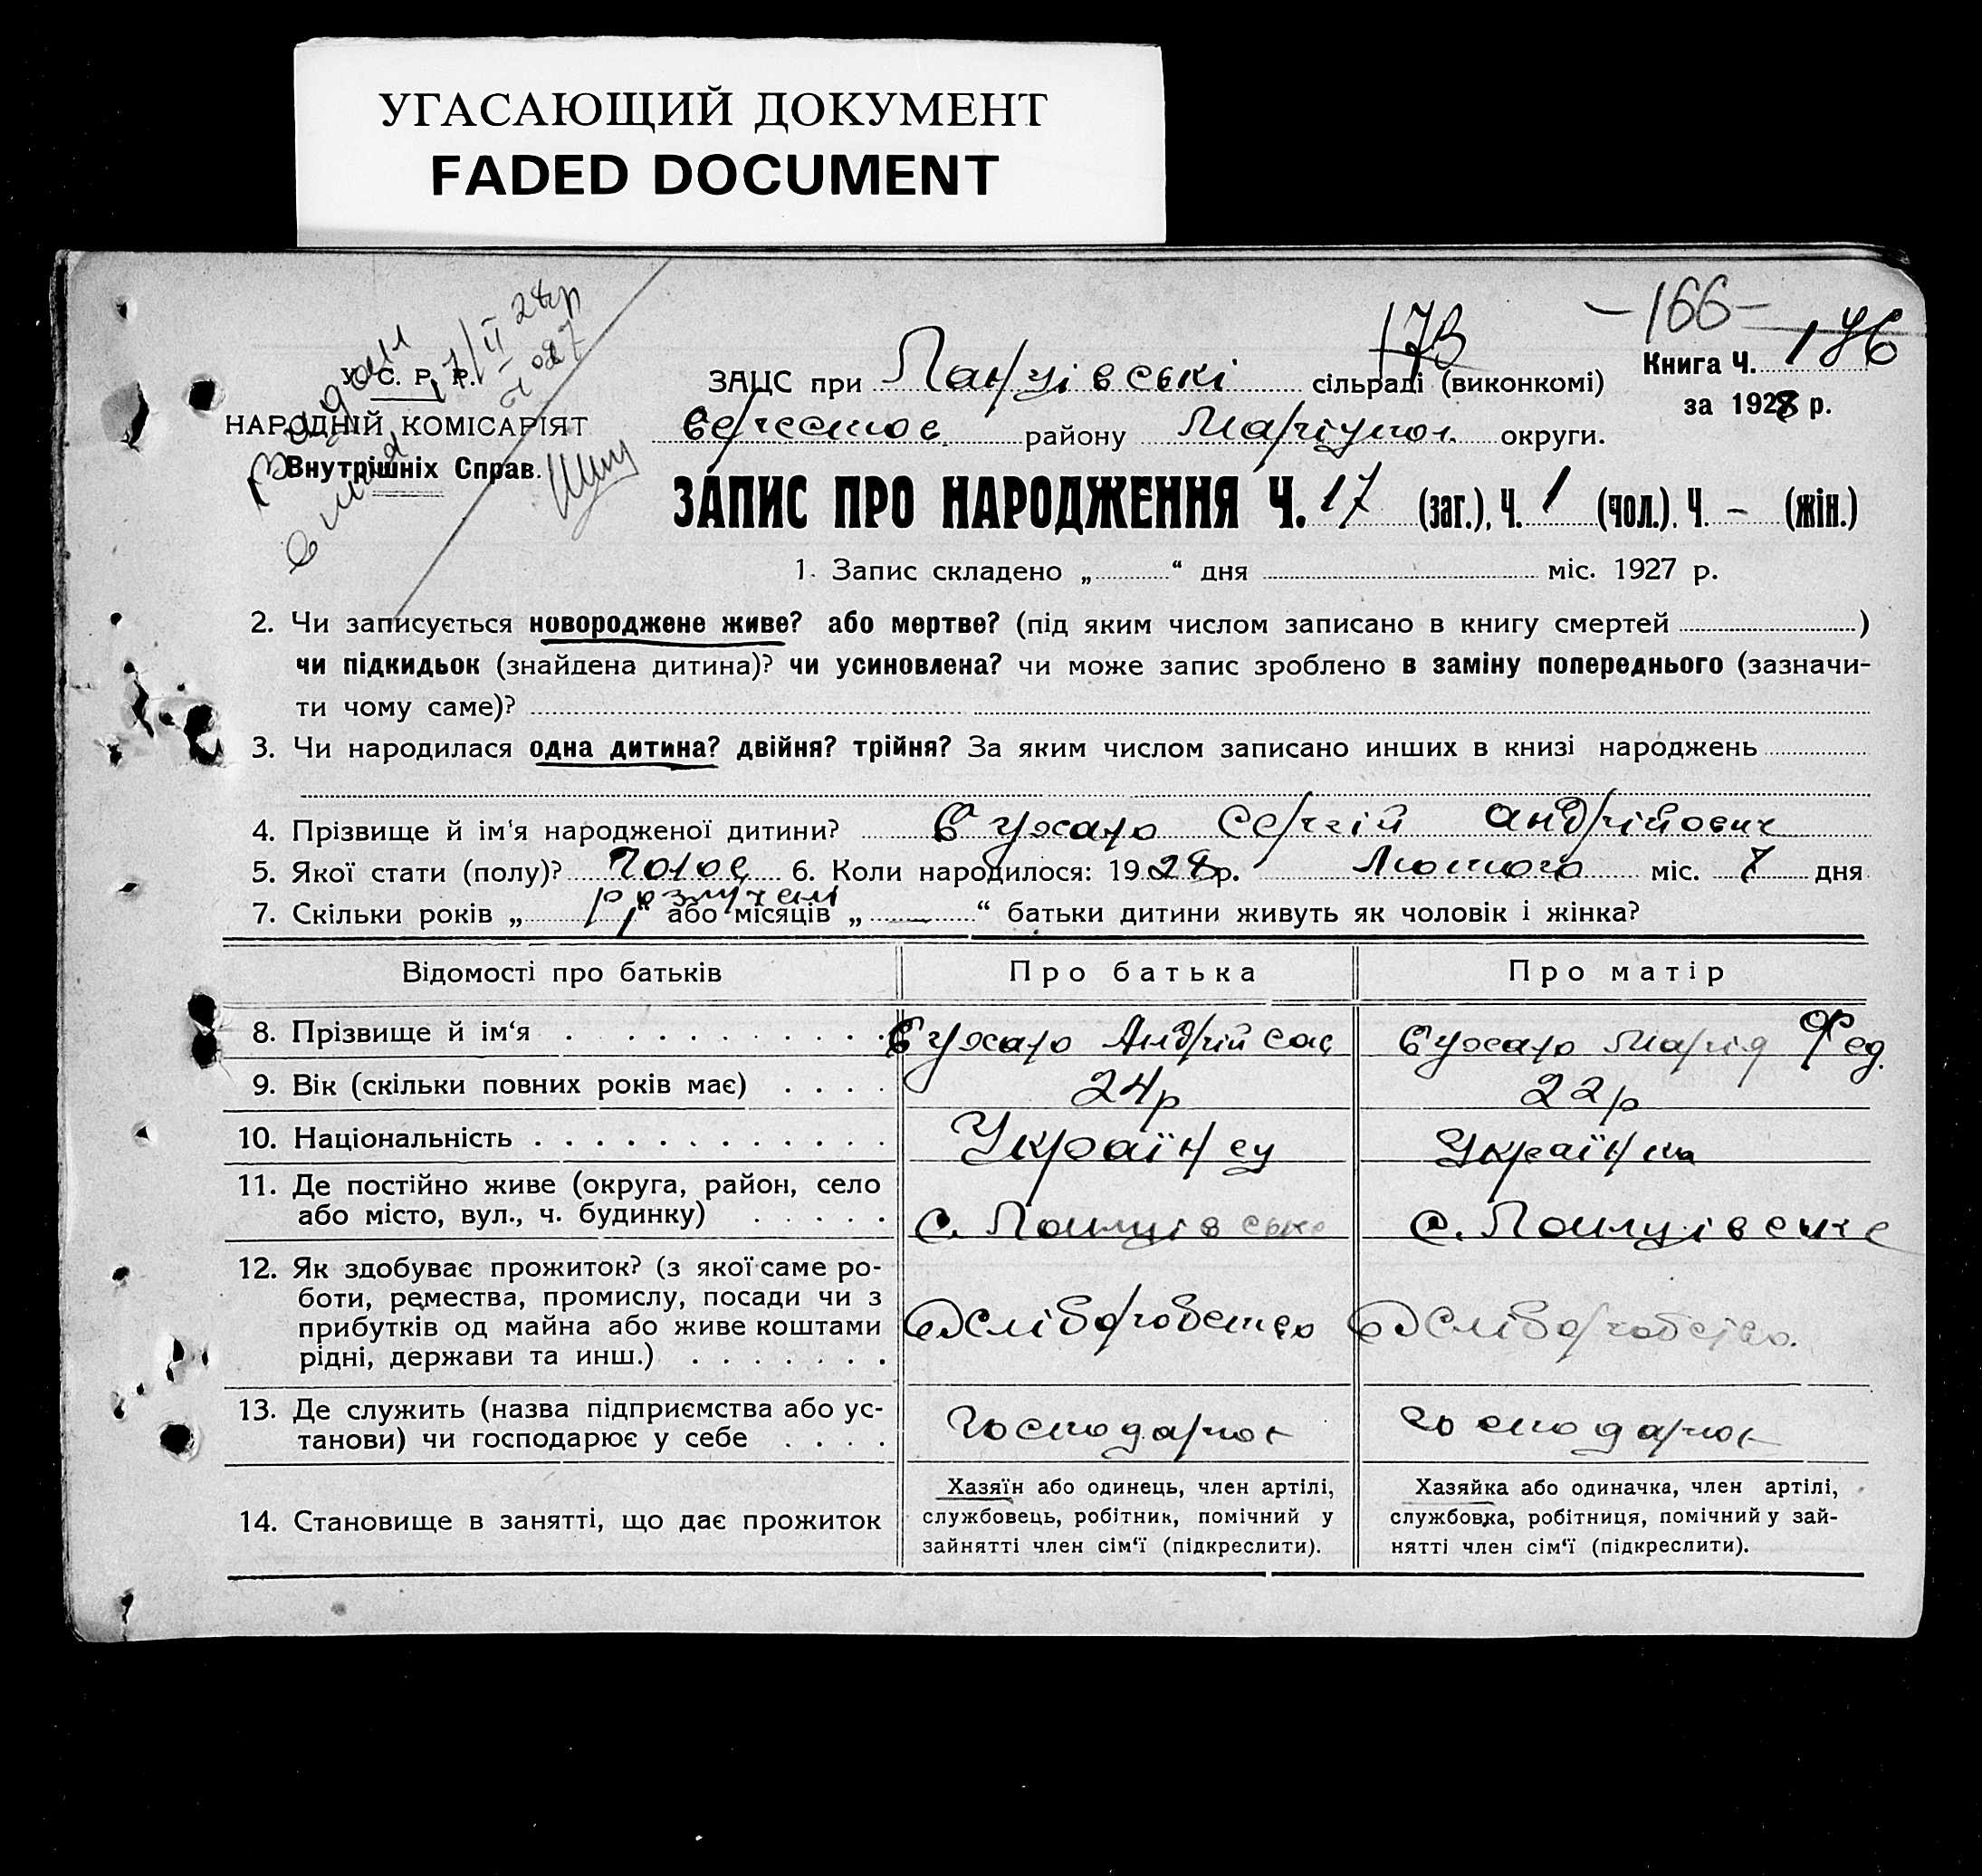 УГАСАЮЩИЙ ДОКУМЕНТ
FADED DOCUMENT
-166-
173
У. С. Р. Р.
ЗАЦС при Ланцівські сільраді (виконкомі)
Книга Ч. 176
за 1928 р.
НАРОДНІЙ КОМІСАРІЯТ
району Маріупол. округи.
Внутрішніх Справ.
ЗАПИС ПРО НАРОДЖЕННЯ Ч. 17 (заг.), Ч. 1 (чол.). Ч. - (жін.)
1. Запис складено „ “ дня міс. 1927 р.
2. Чи записується новороджене живе? або мертве? (під яким числом записано в книгу смертей )
чи підкидьок (знайдена дитина)? чи усиновлена? чи може запис зроблено в заміну попереднього (зазначи-
ти чому саме)?
3. Чи народилася одна дитина? двійня? трійня? За яким числом записано инших в книзі народжень
4. Прізвище й ім'я народженої дитини? Сергій Андрійович
5. Якої стати (полу)? Чолов 6. Коли народилося: 1928 р. Лютого міс. 7 дня
7. Скільки років „ “ або місяців „ — “ батьки дитини живуть як чоловік і жінка?
Відомості про батьків
Про батька
Про матір
8. Прізвище й ім‘я
Андрій
Марія Фед.
9. Вік (скільки повних років має)
24р
22р
10. Національність
Українец
Українка
11. Де постійно живе (округа, район, село
або місто, вул., ч. будинку)
с.
с.
12. Як здобуває прожиток? (з якої саме ро-
боти, ремества, промислу, посади чи з
прибутків од майна або живе коштами
рідні, держави та инш.)
хліборобство
хліборобство.
13. Де служить (назва підприємства або ус-
танови) чи господарює у себе
господарює
господарює
14. Становище в занятті, що дає прожиток
Хазяїн або одинець, член артілі,
службовець, робітник, помічний у
зайнятті член сім‘ї (підкреслити).
Хазяйка або одиначка, член артілі,
службовка, робітниця, помічний у зай-
нятті член сім‘ї (підкреслити).